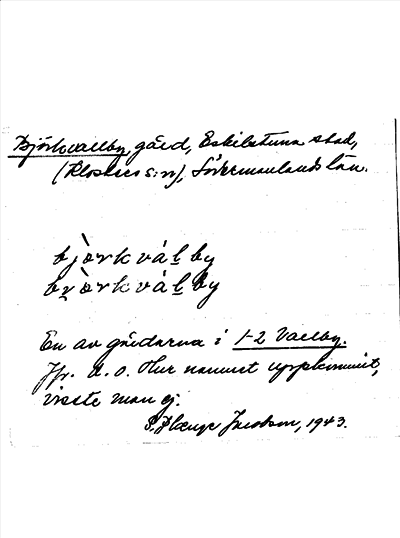 Björkvallby, gård, Eskilstuna stad,
(Klosters sn), Södermanlands län.
bjòrkválby
bròrkválby
En av gårdarna i 1-2 Vallby.
Jfr. d. o. Hur namnet uppkommit,
visste man ej.
Jacobson, 1943.